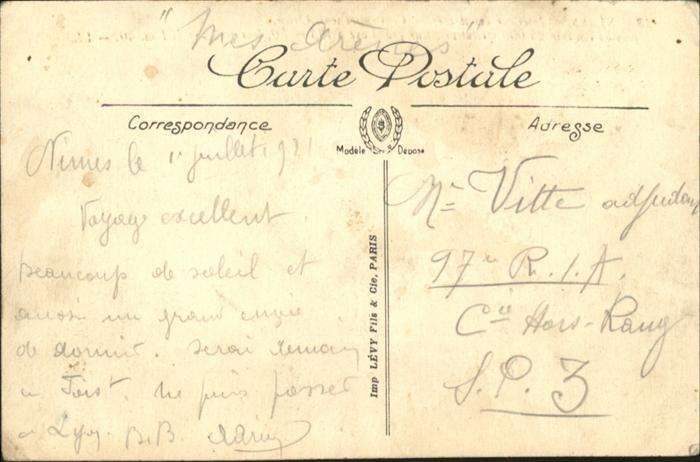 "Mes Arènes"
Carte Postale
Correspondance
Adresse
Modèle Déposé
Nimes le 1er juillet 1921
Voyage excellent
beaucoup de soleil et
aussi un grand envie
de dormir. Serai demain
a ne puis passer
a Lyon. B.B.
Imp LÉVY Fils & Cie, PARIS
Mr Vitte adjudant
97e R.I.A.
Cie Hors-Rang
S.P. 3